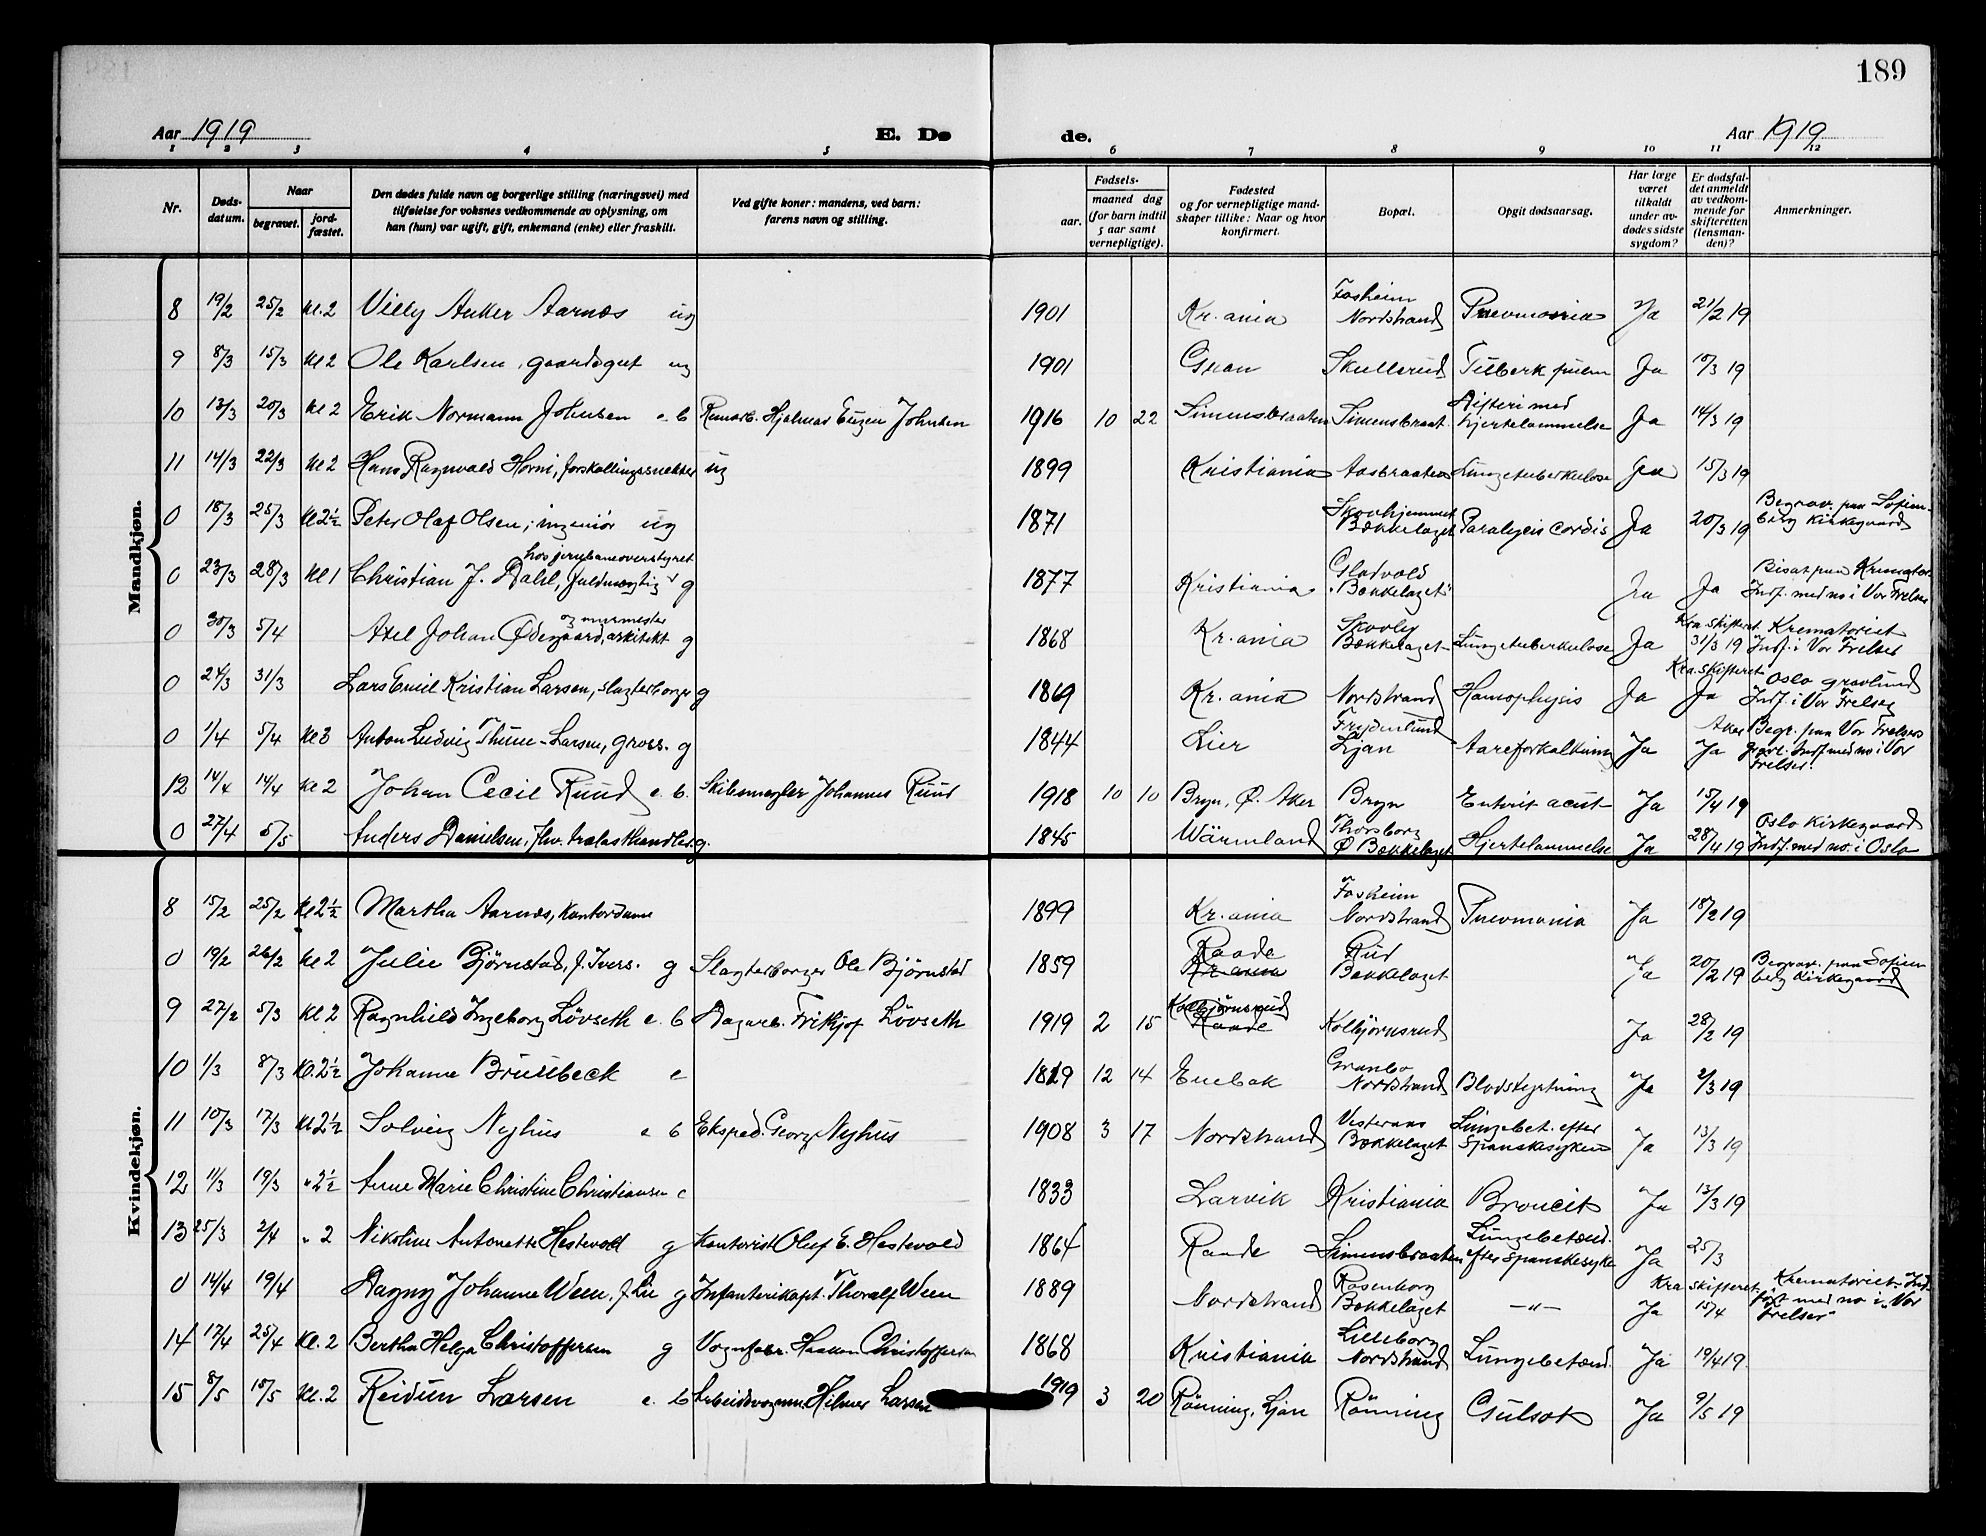 189
Aar 1919 E. Dø de. Aar 1919
1 2 3 4 5 6 7 8 9 10 11 12
Nr. Døds-datum. Naar begravet. jord-fæstet. Den dødes fulde navn og borgerlige stilling (næringsvei) med tilføielse for voksnes vedkommende av oplysning, om han (hun) var ugift, gift, enkemand (enke) eller fraskilt. Ved gifte koner: mandens, ved barn: farens navn og stilling. Fødsels- aar. maaned dag (for barn indtil 5 aar samt vernepligtige). Fødested og for vernepligtige mand-skaper tillike: Naar og hvor konfirmert. Bopæl. Opgit dødsaarsag. Har læge været tilkaldt under av-dødes sidste sygdom? Er dødsfal-det anmeldt av vedkom-mende for skifteretten (lensman-den)? Anmerkninger.
Mandkjøn.
8 19/2 25/2 Kl. 2 Villy Anker Aarnæs ug 1901 Kr.ania Fosheim Nordstrand Pneumonia Ja 21/2 19
9 8/3 15/3 Kl 2 Ole Karlsen, gaardsgut ug 1901 Gran Skullerud Tuberk pulm Ja 10/3 19
10 13/3 20/3 Kl 2 Erik Normann Johnsen e. b Hjalmar Eugen Johnsen 1916 10 22 Simensbraaten Simensbraat. Difteri med hjertelammelse Ja 14/3 19
11 14/3 22/3 Kl 2 Hans Ragnvald Horni, forskallingssnekker ug 1899 Kristiania Aasbraaten Lungetuberkulose Ja 15/3 19
0 18/3 25/3 Kl 2½ Peter Olaf Olsen, ingeniør ug 1871 Skovhjemmet Bækkelaget Paralysis cordis Ja 20/3 19 Begrav. paa Sofien-berg Kirkegaard
0 23/3 28/3 Kl 1 Christian J. Dahl, fuldmægtig hos jernbaneoverstyret g 1877 Kristiania Gladvold "Bækkelaget" Ja Ja Bisat paa Kremator. Indf. med no i Vor Frelser
0 30/3 5/4 Axel Johan Ødegaard, arkitekt og murmester g 1868 Kr.ania Skovly Bækkelaget Lungetuberkulose Ja Kra. Skifteret 31/3 19 Krematoriet Indf. i Vor Frelser
0 24/3 31/3 Lars Emil Kristian Larsen, slagterborger g 1869 Kr.ania Nordstrand Hæmophysis Ja Kra. Skifteret Ja Oslo gravlund Indf. i Vor Frelser
0 1/4 5/4 Kl 3 Anton Ludvig Thune-Larsen, gross. g 1844 Lier Frydenlund Ljan Aareforkalkning Ja Aker Ja Begr. paa Vor Frelsers gravl. Indf med no i Vor Frelser.
12 14/4 14/4 Kl 2 Johan Cecil Ruud e. b. Skibsmegler Johannes Ruud 1918 10 10 Bryn, Ø. Aker Bryn Enterit acut Ja 15/4 19
0 27/4 5/5 Anders Danielsen, fhv. trælasthandler g. 1845 Wärmland Thorsborg Ø Bækkelaget Hjertelammelse Ja 28/4 19 Oslo Kirkegaard Indf. med no. i Oslo
Kvindekjøn.
8 15/2 25/2 Kl 2½ Martha Aarnæs, kontordame 1899 Kr.ania Fosheim Nordstrand Pneumonia Ja 18/2 19
0 19/2 26/2 Kl 2 Julie Bjørnstad, f. Ivers. g Slagterborger Ole Bjørnstad 1859 Raade Kr.ania Rud Bækkelaget Ja 20/2 19 Begrav. paa Sofien berg Kirkegaard
9 27/2 5/3 Kl 2 Ragnhild Ingeborg Lövseth e. b Dagarb. Fritjof Lövseth 1919 2 15 Kolbjørnsrud Raade Kolbjörnsrud Ja 28/2 19
10 1/3 8/3 Kl. 2½ Johanne Brusebeck e 1829 12 14 Enebak Granbo Nordstrand Blodstyrtning Ja 2/3 19
11 10/3 17/3 Kl 2½ Solveig Nyhus e b Eksped. Georg Nyhus 1908 3 17 Nordstrand Bækkelaget Lungebet. efter Spanskesyken Ja 13/3 19
12 11/3 19/3 " 2½ Anne Marie Christine Christiansen e 1833 Larvik Kristiania Broncit Ja 13/3 19
13 25/3 2/4 " 2 Nikoline Antonette Hestvold g Kontorist Oluf E. Hestvold 1864 Raade Simensbraaten Lungebetænd. efter Spanskesyke Ja 25/3
0 14/4 19/4 Dagny Johanne Ween, f. Lie g Infanterikapt. Thoralf Ween 1889 Nordstrand Rosenborg Bækkelaget —"— Kra Skifteret Ja 15/4 Krematoriet. Ind-ført med no i "Vor Frelser"
14 17/4 25/4 Kl. 2 Bertha Helga Christoffersen g Vognfabr. Haakon Christoffersen 1868 Kristiania Lilleborg Nordstrand Lungebetænd. Ja 19/4 19.
15 8/5 15/5 Kl. 2 Reidun Larsen e. b Arbeidsvognm. Hilmer Larsen 1919 3 20 Rönning, Ljan Rönning Gulsot Ja 9/5 19